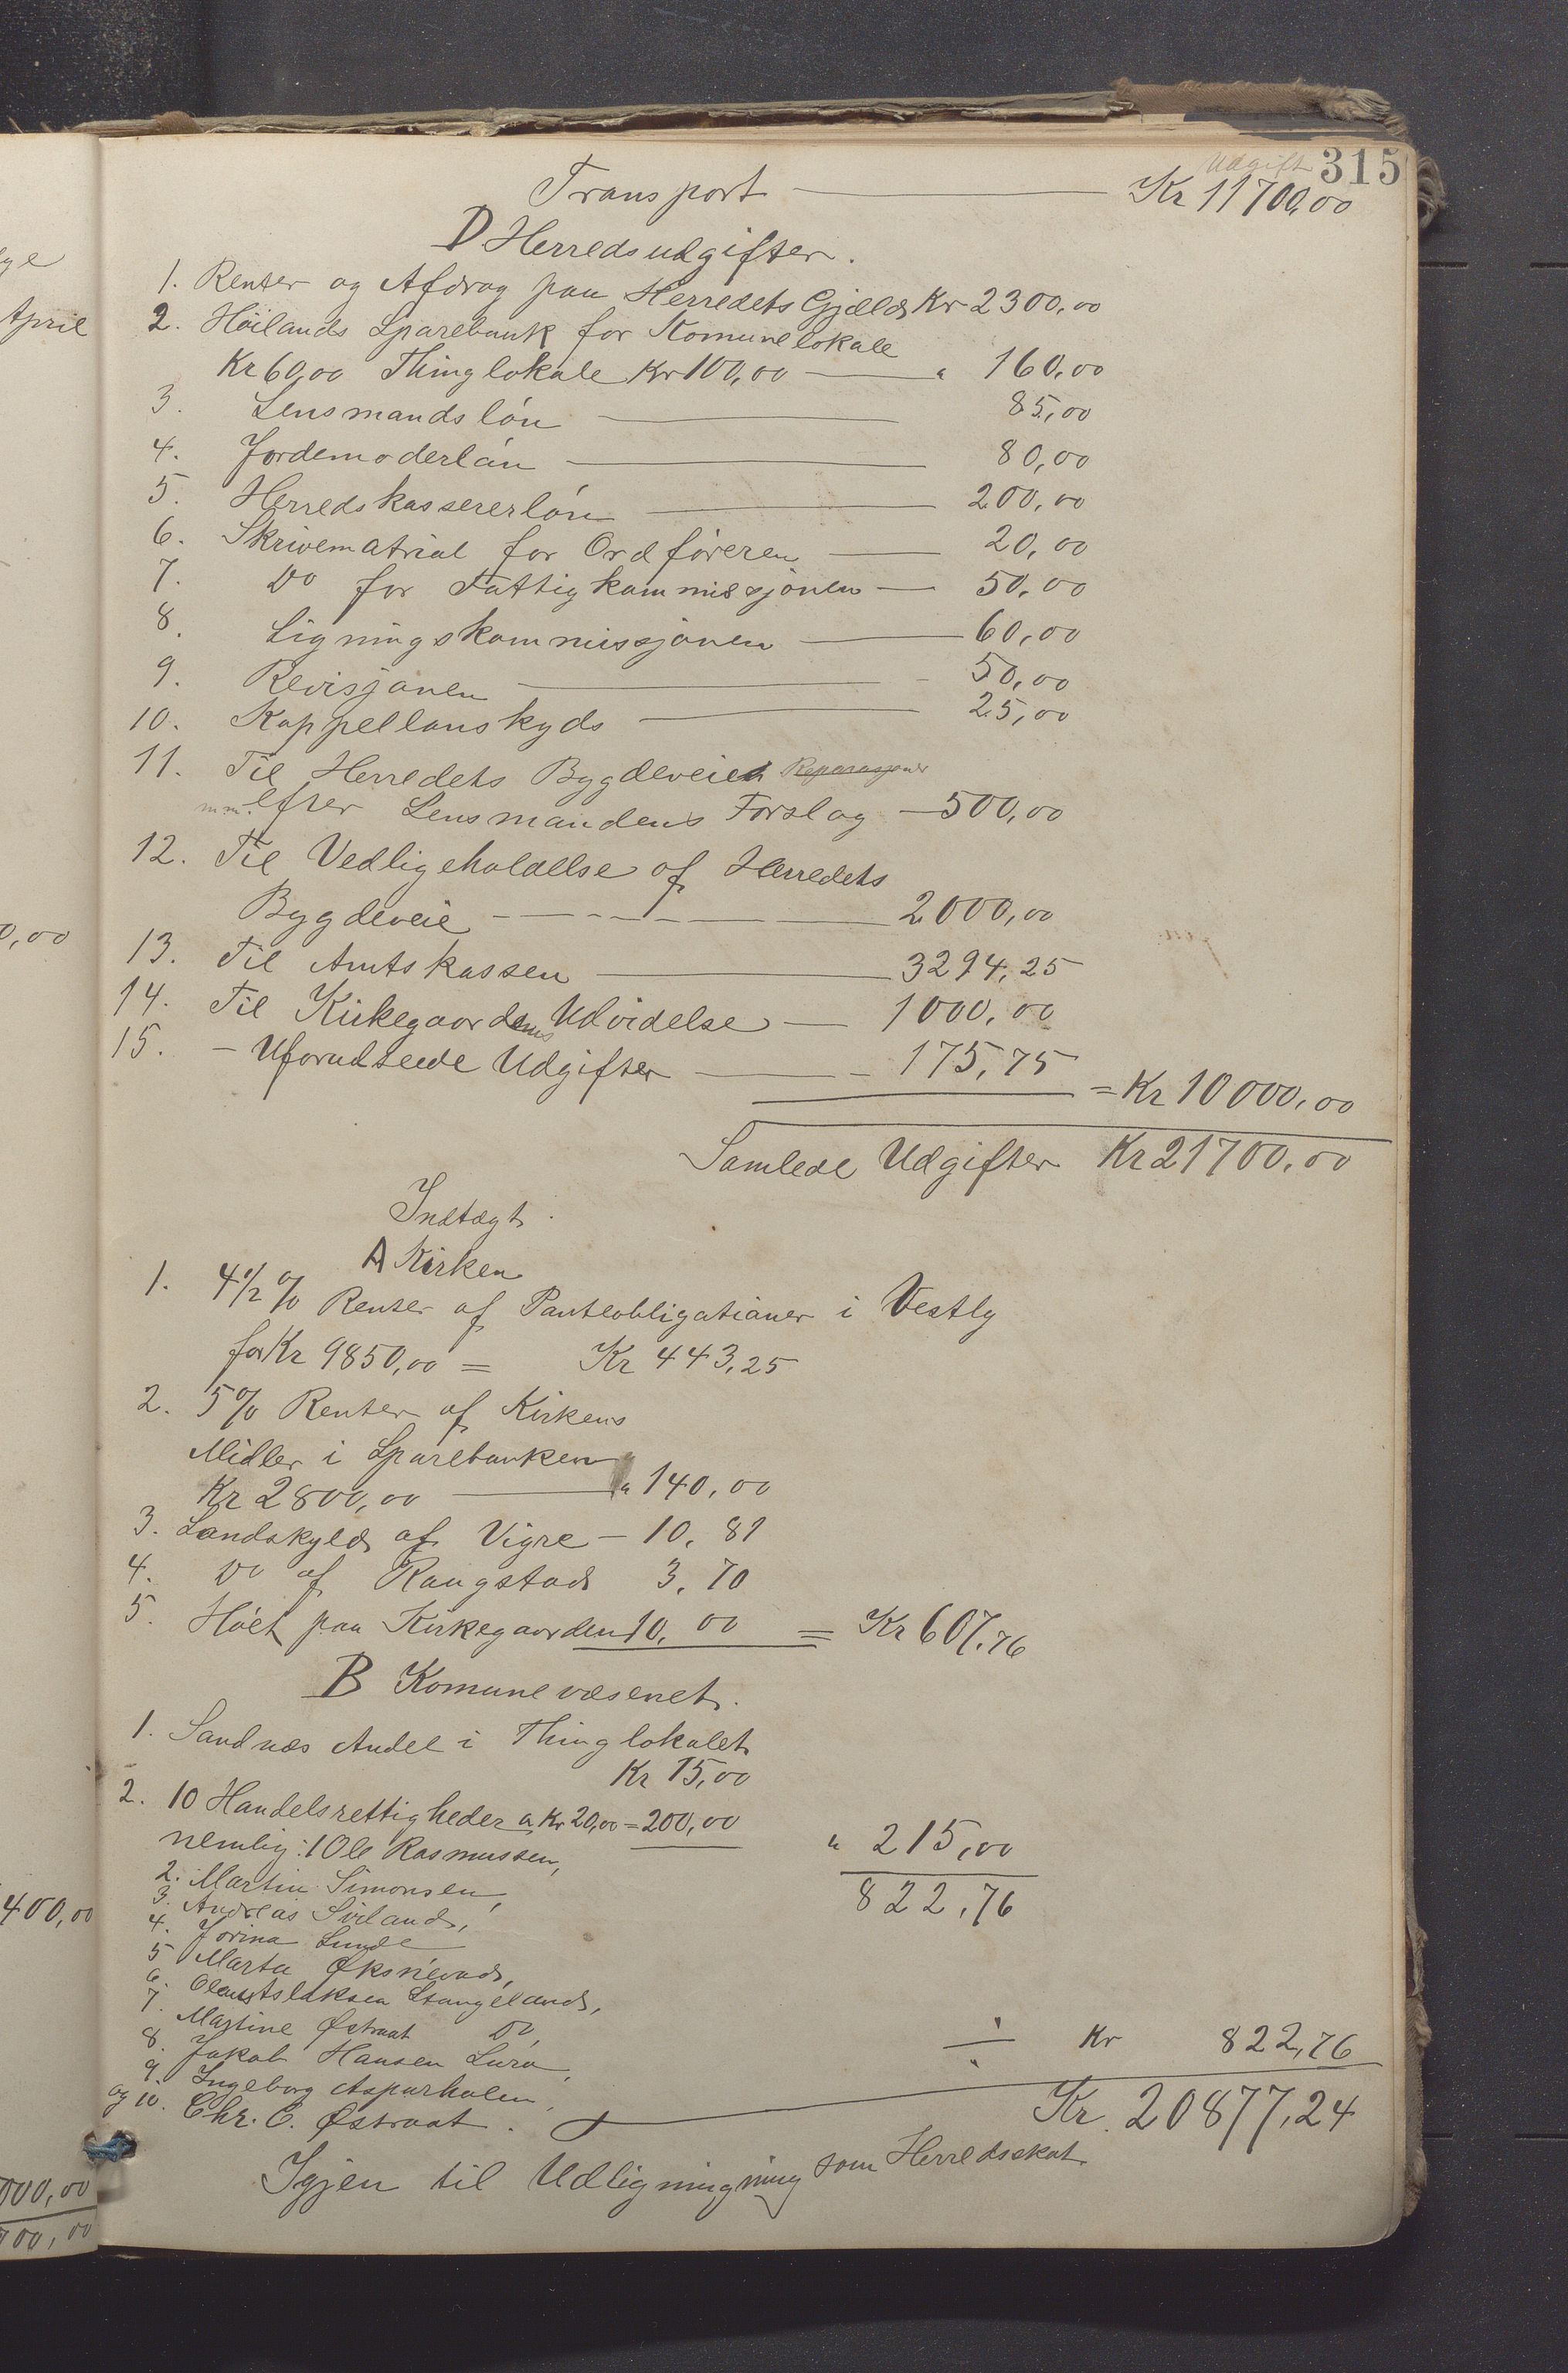 Udgift 315
Transport Kr 11700,00
D Herredsudgifter.
1. Renter og Afdrag paa Herredets Gjæld Kr 2300,00
2. Höilands Sparebank for Komunelokale
Kr 60,00 Thinglokale Kr 100,00 — " 160,00
3. Lensmandslón — 85,00
4. Jordemoderlón — 80,00
5. Herredskassererlón — 200,00
6. Skrivematrial for Ordføreren — 20,00
7. Do for Fattigkommissjonen — 50,00
8. Ligningskommissjonen — 60,00
9. Revisjonen — 50,00
10. Kappellanskyds — 25,00
11. Til Herredets Bygdeveies Reparasjoner
m.m. efter Lensmandens Forslag — 500,00
12. Til Vedligeholdelse af Herredets
Bygdeveie — 2000,00
13. Til Amtskassen — 3294,25
14. Til Kirkegaardens Udvidelse — 1000,00
15. - Uforudseede Udgifter — 175,75
= Kr 10000,00
Samlede Udgifter Kr 21700,00
Indtægt.
A Kirken
1. 4 1/2 % Renter af Panteobligationer i Vestly
for Kr 9850,00 = Kr 443,25
2. 5% Renter af Kirkens
Midler i Sparebanken
Kr 2800,00 — " 140,00
3. Landskyld af Vigre — 10,81
4. Do af Raugstad 3,70
5. Höet paa Kirkegaarden 10,00 = Kr 607,76
B Komunevæsenet.
1. Sandnæs Andel i Thinglokalet
Kr 15,00
2. 10 Handelsrettigheder a Kr 20,00 = 200,00
" 215,00
nemlig: 1 Ole Rasmussen,
2. Martin Simonsen,
822,76
3. Andreas Soiland,
4. Jorina Lunde
5 Marta Øksnevad,
6. Olaus Aslaksen Stangeland,
7. Martine Østraat Do,
8. Jakob Hansen Lura,
÷ Kr 822,76
9. Ingeborg Asparholen,
og 10. Chr. C. Østraat. Kr. 20877,24
Igjen til Udligningning som Herredsskat